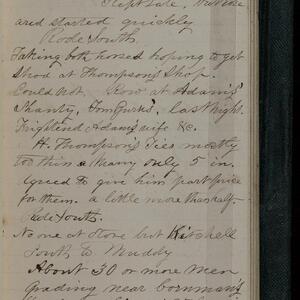 Slept late,
and started quickly
Rode South
Taking both horses hoping to get
Shod at Thompson's Shop.
Could not. Row at Adams'
Shanty, last Night.
Frightend Adams wife &c.
H. Thompson's Ties mostly
too thin & Many only 5 in.
Agreed to give him part price
for them. a little more than half.
Rode South.
No one at Store but Kitchell
South to Muddy
About 30 or more men
grading near bornman's